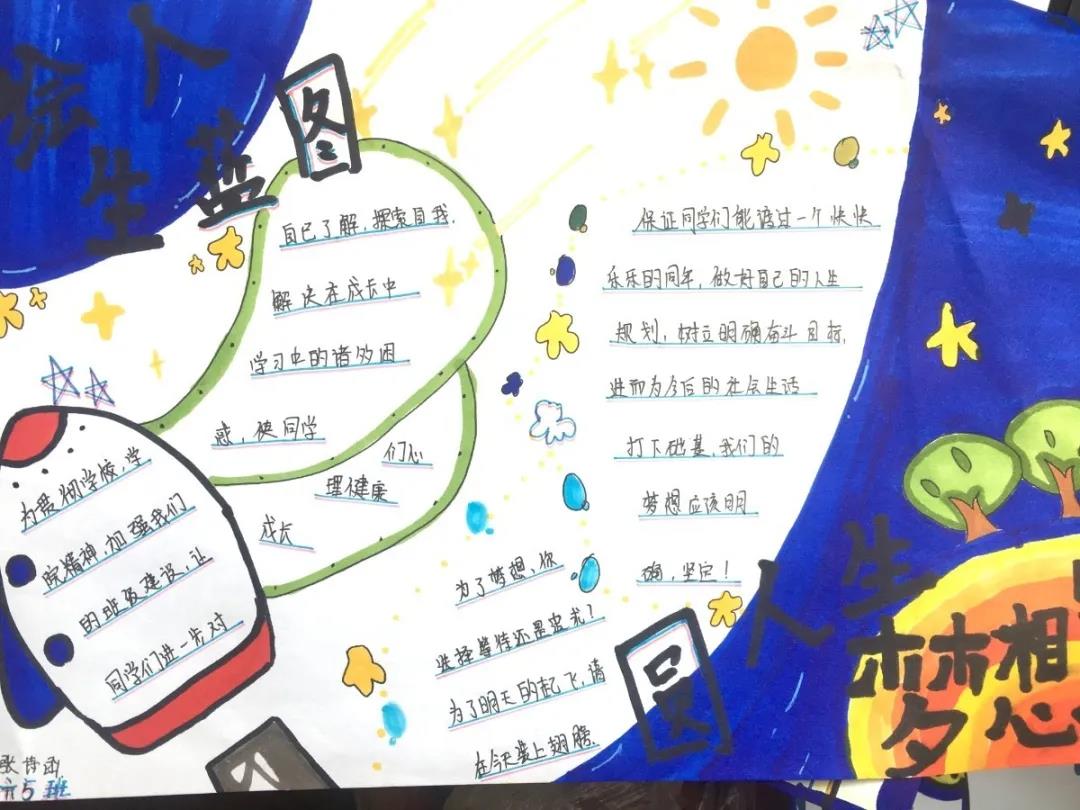 绘人生蓝图
为贯彻学校,学
院精神,加强我们
的班级建设,让
同学们进一步对
自己了解,探索自我,
解决在成长中
学习中的诸多困
惑,使同学
们心
理健康
成长
为了梦想、你
选择等待还是追光?
为了明天的起飞,请
在今天装上翅膀
保证同学们能渡过一个快快
乐乐的同年,做好自己的人生
规划,树立明确奋斗目标,
进而为今后的社会生活
打下础基,我们的
梦想应该明
确,坚定!
圆人生
梦想
5班